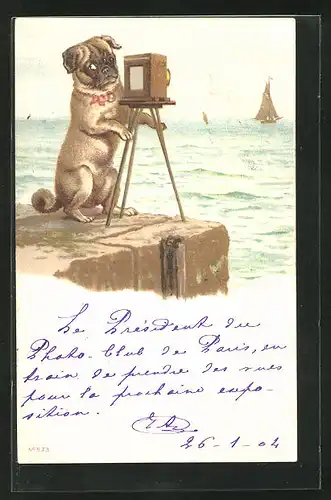 Le Président du
Photo-Club de Paris, en
train de prendre des vues
pour la prochaine expo-
sition.
26-1-04